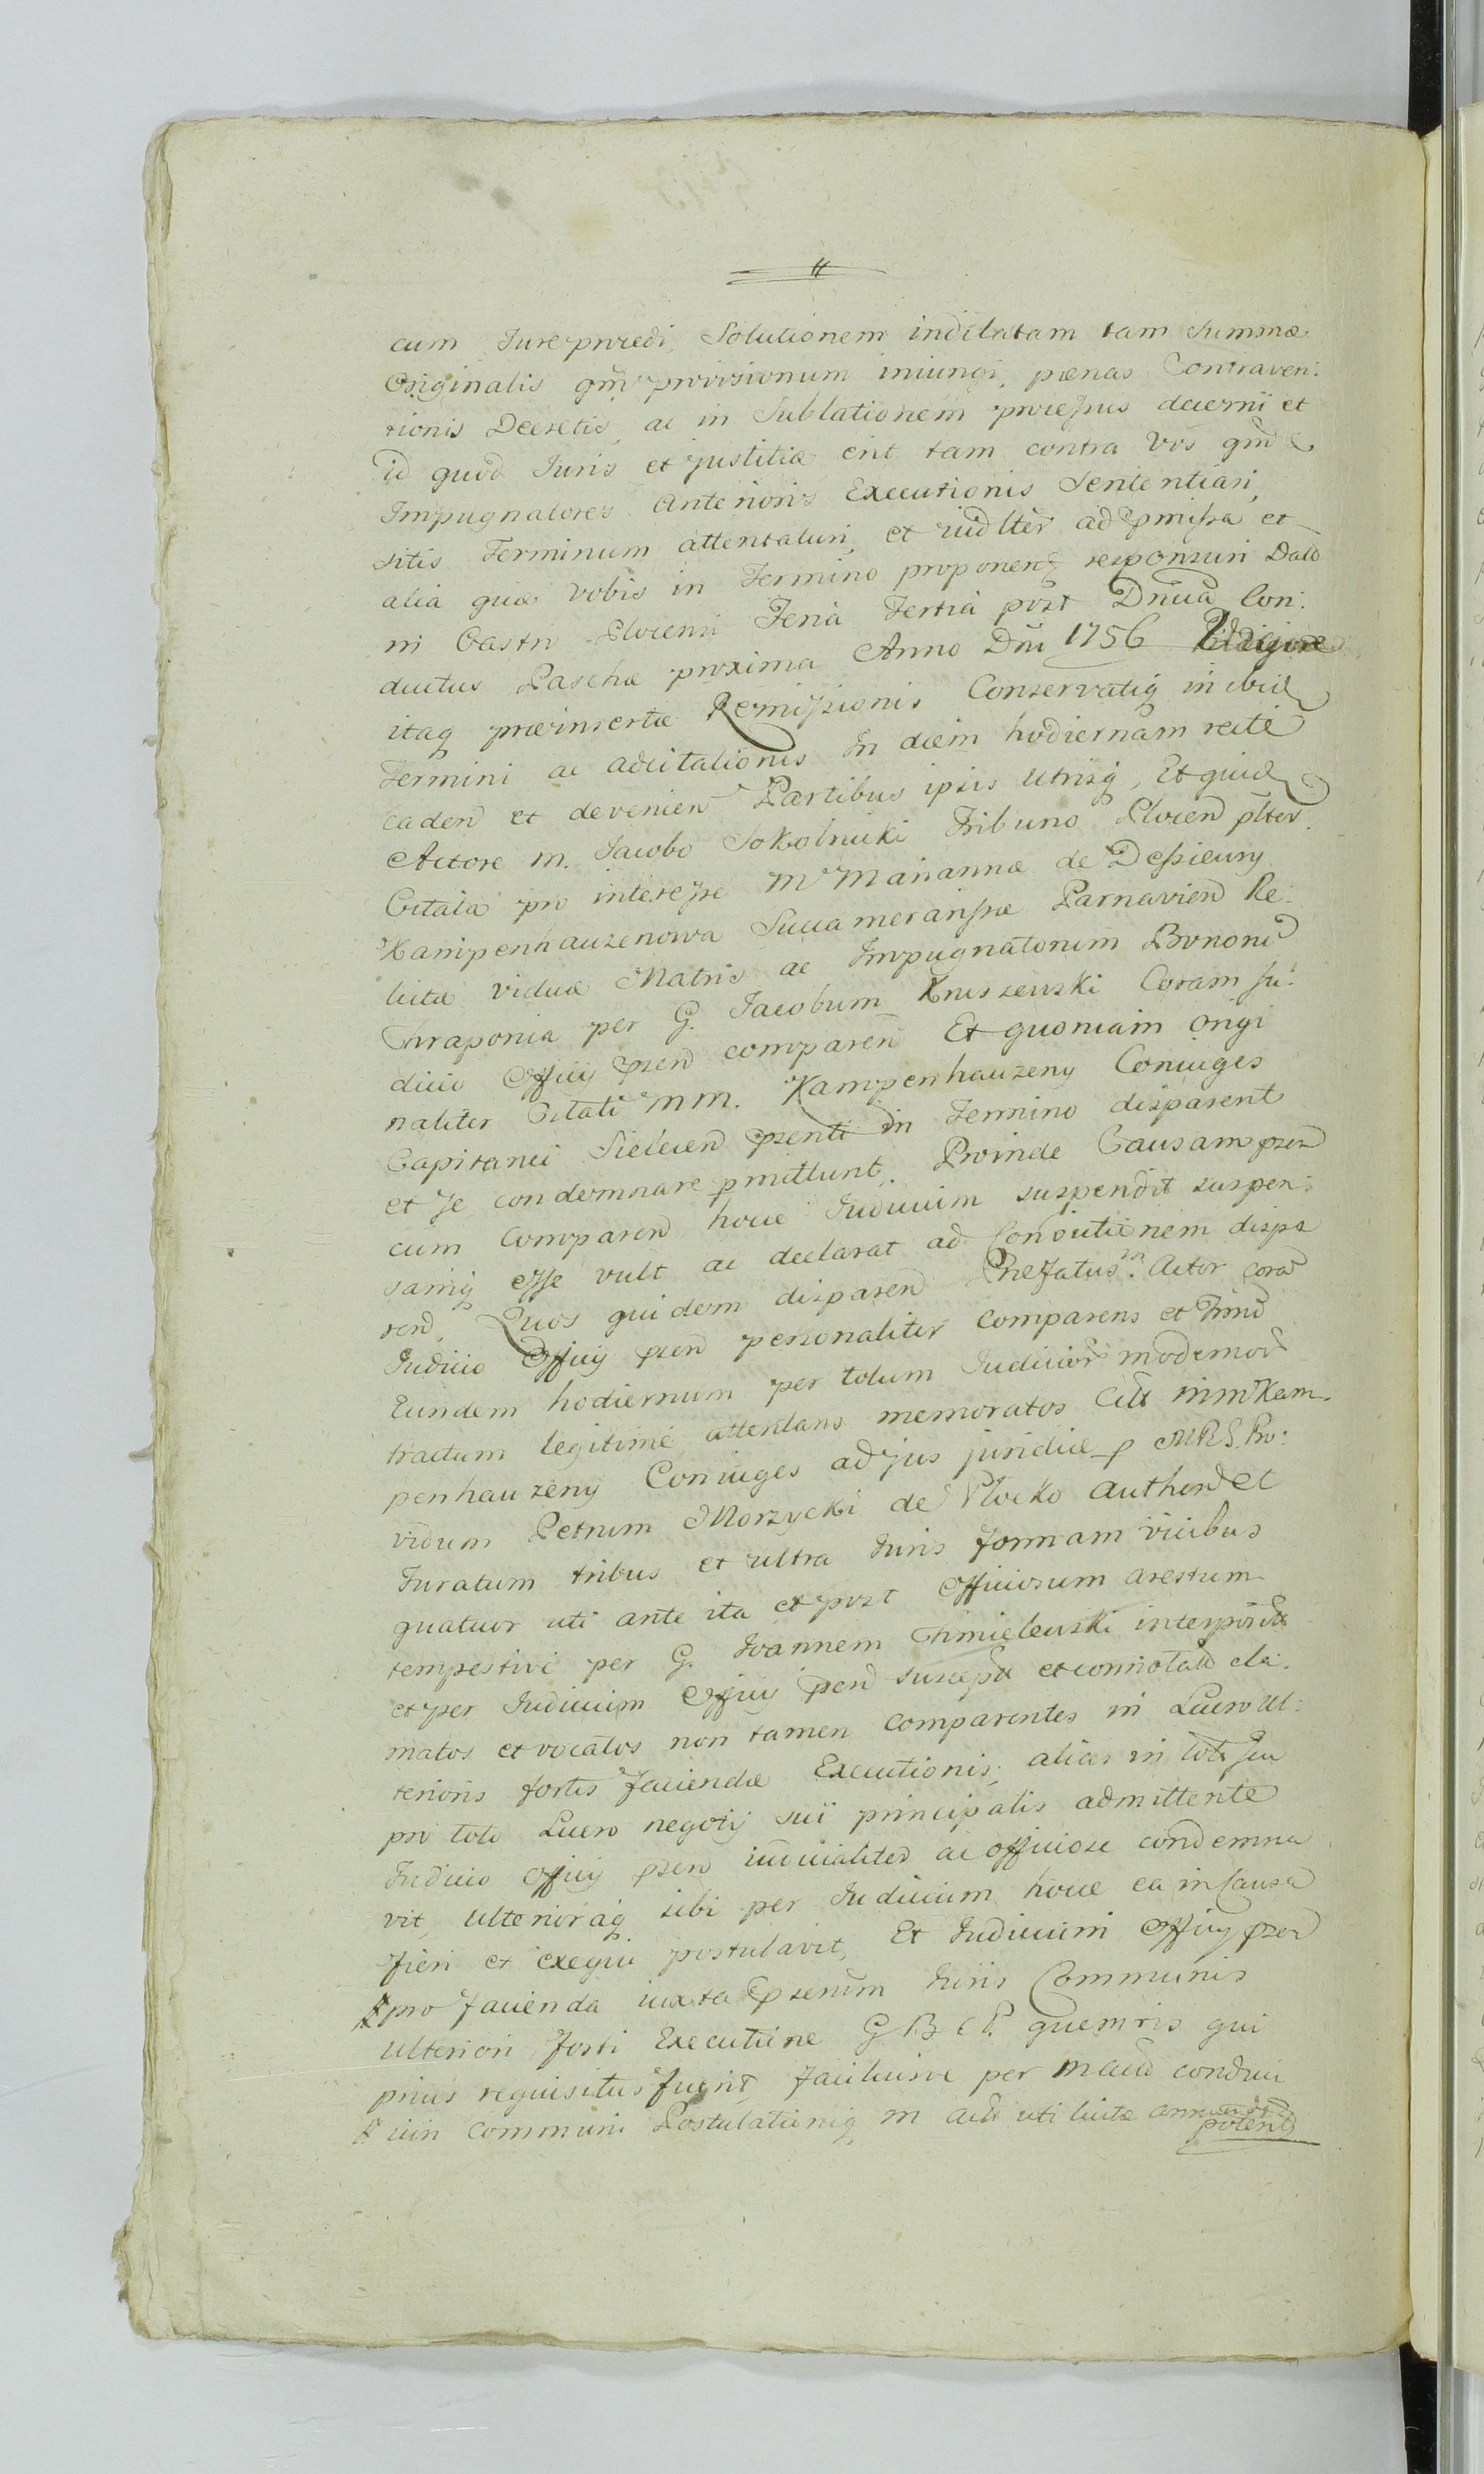 cum Jure præedi, Solutionem indilatam tam Summæ
Originalis qm̃ provisionum iniungi, pænas Contraven:
tionis Decretis, ac in Sublationem processus decerni et
id quod Juris et justitiæ erit tam contra Vos qm̃
Impugnatores anterioris Executionis Sententiari,
sitis Terminum attentaturi, et iudlter ad præmissa et
alia quæ vobis in Termino proponen responsuri Dato
in Castro Plocen Feria Tertia post Dnicã Con:
ductus Paschæ proxima Anno Dni 1756 Vigore
itaq præinsertæ Remissionis Conservatiq in ibid
Termini ac adcitationis In diem hodiernam recte
caden et devenien Partibus ipsis utrisq, Et quid
Actore M. Jacobo Sokolnicki Tribuno Plocen plter.
Citata pro interesse M Mariannæ de Dessieury
Kampenhauzenowa Succamerarissæ Parnavien Re:
lictæ viduæ Matris ac Impugnatorum Bonorum
Chraponia per G. Jacobum Kruszewski Coram Ju:
dicio Officij prn comparen Et quoniam origi
naliter Citati MM. Kampenhauzeny Coniuges
Capitanei Sielcen prnti in Termino disparent
et se condemnare pmittunt. Proinde Causam prn
cum Comparen hocce Judicium suspendit suspen:
samq esse vult ac declarat ad Conditionem dispa
ren, Quos quidem disparen Præfatus M. Actor corã
Judicio Officij prn personaliter Comparens et Trnũ
Eundem hodiernum per totum Judicior modernor
tractum legitime attentans memoratos Citt MM Kam-
penhauzeny Coniuges ad jus juridice p M R S. Pro:
vidum Petrum Morzycki de Plocko authen et
Juratum tribus et ultra Juris formam vicibus
quatuor uti ante ita et post Officiosum arestum
tempestive per G. Joannem Chmielewski interpositt
et per Judicium Officij prn suscept et connotat cla:
matos et vocatos non tamen Comparentes in Lucro Ul:
terioris fortis faciendæ Executionis, alias in toto seu
pro toto Lucro negotij sui principalis admittente
Judicio Officij prn iudicialiter ac officiose condemna
vit, ulterioraq sibi per Judicium hocce ea in Causa
fieri et exequi postulavit, Et Judicium Officij prn
pro facienda iuxta præsenum Juris Communis
Ulteriori forti Executione G B C P. quemvis qui
prius requisitus fuerit, faciliusve per M acto conduci
iuri Communi Postulationiq M Act uti licitæ annuendo
poterit